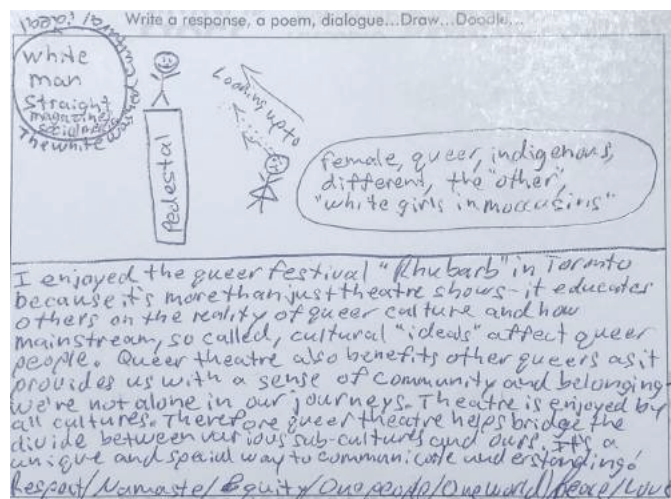 Write a response, a poem, dialogue...Draw...Doodle...
white
man
Straight
magazine
social media
The white washed cultural ideal
Pedestal
Looking up to
female, queer, indigenous,
different, the "other",
"white girls in moccasins"
I enjoyed the queer festival "Rhubarb" in Toronto
because it's more than just theatre shows - it educates
others on the reality of queer culture and how
mainstream, so called, cultural "ideals" affect queer
people. Queer theatre also benefits other queers as it
provides us with a sense of community and belonging
we're not alone in our journeys. Theatre is enjoyed by
all cultures. Therefore queer theatre helps bridge the
divide between various sub-cultures and ours. It's a
unique and special way to communicate understanding!
Respect/Namaste/Equity/One people/One world/Peace/Love